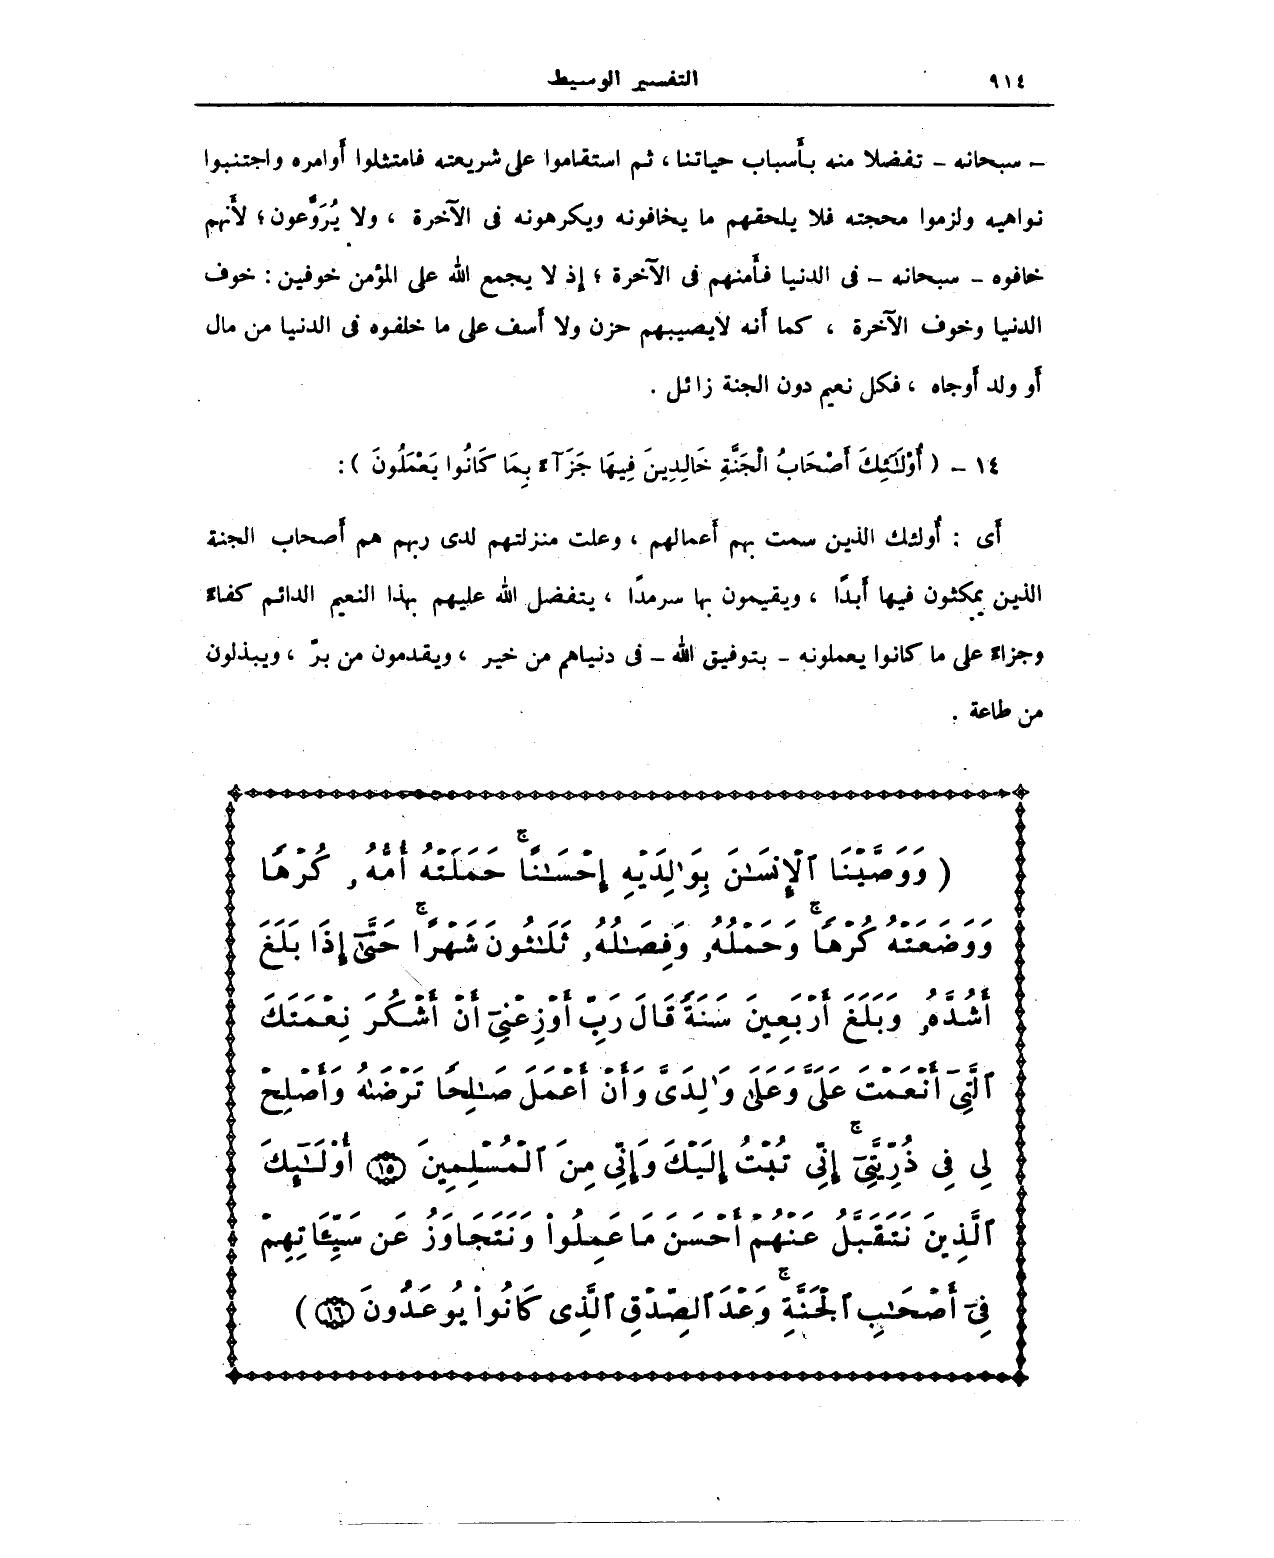 ٩١٤ التفسير الوسيط
– سبحانه – تفضلا منه بأسباب حياتنا ، ثم استقاموا على شريعته فامتثلوا أوامره واجتنبوا
نواهيه ولزموا محجته فلا يلحقهم ما يخافونه ويكرهونه فى الآخرة ، ولا يُرَوَّعون ؛ لأنهم
خافوه – سبحانه – فى الدنيا فأمنهم فى الآخرة ؛ إذ لا يجمع الله على المؤمن خوفين : خوف
الدنيا وخوف الآخرة ، كما أنه لايصيبهم حزن ولا أسف على ما خلفوه فى الدنيا من مال
أو ولد أوجاه ، فكل نعيم دون الجنة زائل .
١٤ – ( أُوْلَـٰئِكَ أَصْحَابُ الْجَنَّةِ خَالِدِينَ فِيهَا جَزَآءً بِمَا كَانُوا يَعْمَلُونَ ) :
أى : أُولئك الذين سمت بهم أعمالهم ، وعلت منزلتهم لدى ربهم هم أصحاب الجنة
الذين يمكثون فيها أبدًا ، ويقيمون بها سرمدًا ، يتفضل الله عليهم بهذا النعيم الدائم كفاءً
وجزاءً على ما كانوا يعملونه – بتوفيق الله – فى دنياهم من خير ، ويقدمون من برّ ، ويبذلون
من طاعة .
( وَوَصَّيْنَا ٱلْإِنسَـٰنَ بِوَٰلِدَيْهِ إِحْسَـٰنًا ۖ حَمَلَتْهُ أُمُّهُۥ كُرْهًا
وَوَضَعَتْهُ كُرْهًا ۖ وَحَمْلُهُۥ وَفِصَـٰلُهُۥ ثَلَـٰثُونَ شَهْرًا ۚ حَتَّىٰٓ إِذَا بَلَغَ
أَشُدَّهُۥ وَبَلَغَ أَرْبَعِينَ سَنَةً قَالَ رَبِّ أَوْزِعْنِىٓ أَنْ أَشْكُرَ نِعْمَتَكَ
ٱلَّتِىٓ أَنْعَمْتَ عَلَىَّ وَعَلَىٰ وَٰلِدَىَّ وَأَنْ أَعْمَلَ صَـٰلِحًا تَرْضَىٰهُ وَأَصْلِحْ
لِى فِى ذُرِّيَّتِىٓ ۖ إِنِّى تُبْتُ إِلَيْكَ وَإِنِّى مِنَ ٱلْمُسْلِمِينَ ﴿١٥﴾ أُوْلَـٰٓئِكَ
ٱلَّذِينَ نَتَقَبَّلُ عَنْهُمْ أَحْسَنَ مَا عَمِلُوا۟ وَنَتَجَاوَزُ عَن سَيِّـَٔاتِهِمْ
فِىٓ أَصْحَـٰبِ ٱلْجَنَّةِ ۖ وَعْدَ ٱلصِّدْقِ ٱلَّذِى كَانُوا۟ يُوعَدُونَ ﴿١٦﴾ )